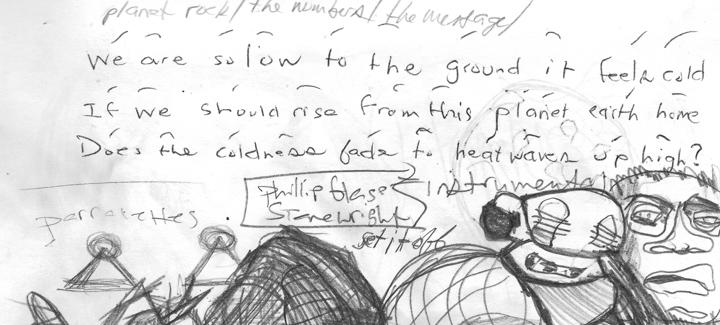 planet rock/the numbers/the message/
We are so low to the ground it feels cold
If we should rise from this planet earth home
Does the coldness fade to heatwaves up high?
phillip glass
Instrumental
Stevewright
parrakettes.
set it off